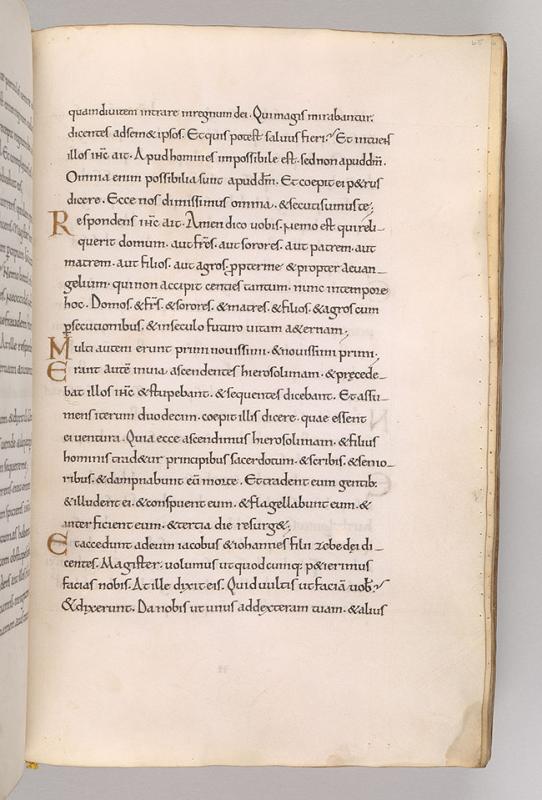 quam diuitem intrare in regnum dei. Qui magis mirabantur.
dicentes ad sem&ipsos. Et quis potest saluus fieri? Et intuens
illos ihc ait. Apud homines impossibile est. sed non apud dm.
Omnia enim possibilia sunt apud dm. Et coepit ei p&rus
dicere. Ecce nos dimissimus omnia. & secuti sumus te;
Respondens ihc ait. Amen dico uobis. Nemo est qui reli-
querit domum. aut frs. aut sorores. aut patrem. aut
matrem. aut filios. aut agros. ppter me & propter aeuan-
gelium. qui non accipit centies tantum. nunc in tempore
hoc. Domos. & frs. & sorores. & matres. & filios. & agros cum
psecutionibus. & in seculo futuro uitam a&ernam;
Multi autem erunt primi nouissimi. & nouissimi primi;
Erant aute in uia ascendentes hierosolimam. & precede-
bat illos ihc & stupebant. & sequentes dicebant. Et assu-
mens iterum duodecim. coepit illis dicere. quae essent
ei uentura. Quia ecce ascendimus hierosolimam. & filius
hominis trad&ur principibus sacerdotum. & scribis. & senio-
ribus. & dampnabunt eu morte. Et tradent eum gentib:
& illudent ei. & conspuent eum. & flagellabunt eum. &
interficient eum. & tertia die resurg&;
Et accedunt ad eum iacobus & iohannes filii zebedei di-
centes. Magister. uolumus ut quodcumq: p&ierimus
facias nobis. At ille dixit eis. Quid uultis ut facia uob:?
& dixerunt. Da nobis ut unus ad dexteram tuam. & alius